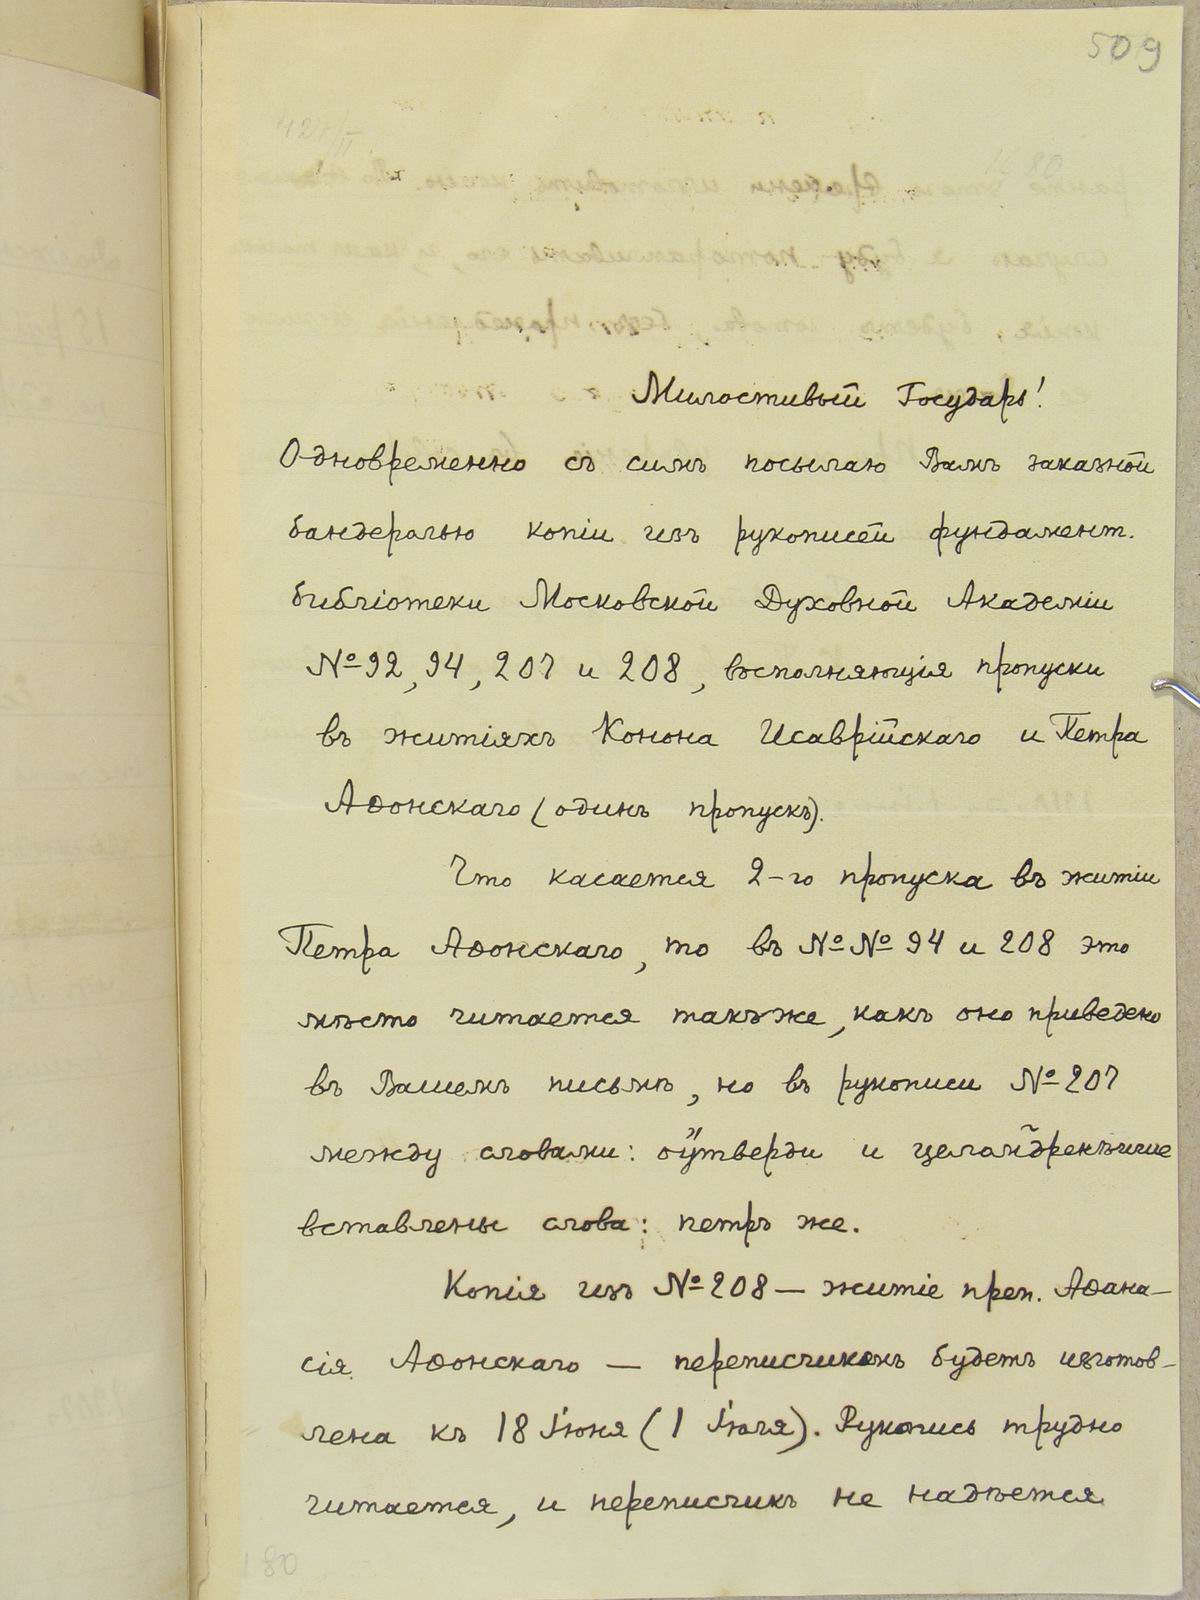 509
Милостивый Государь!
Одновременно съ симъ посылаю Вамъ заказной
бандеролью копіи изъ рукописей фундамент.
библіотеки Московской Духовной Академіи
№ 92, 94, 207 и 208, восполняющія пропуски
въ житіяхъ Конона Исаврійскаго и Петра
Аѳонскаго (одинъ пропускъ).
Что касается 2-го пропуска въ житіи
Петра Аѳонскаго, то въ №№ 94 и 208 это
мѣсто читается такъ же, какъ оно приведено
въ Вашемъ письмѣ, но въ рукописи № 207
между словами: оутверди и
вставлены слова: петръ же.
Копія изъ № 208 — житіе преп. Аѳана-
сія Аѳонскаго — переписчикомъ будетъ изготов-
лена къ 18 Іюня (1 Іюля). Рукопись трудно
читается, и переписчикъ не надѣется
180